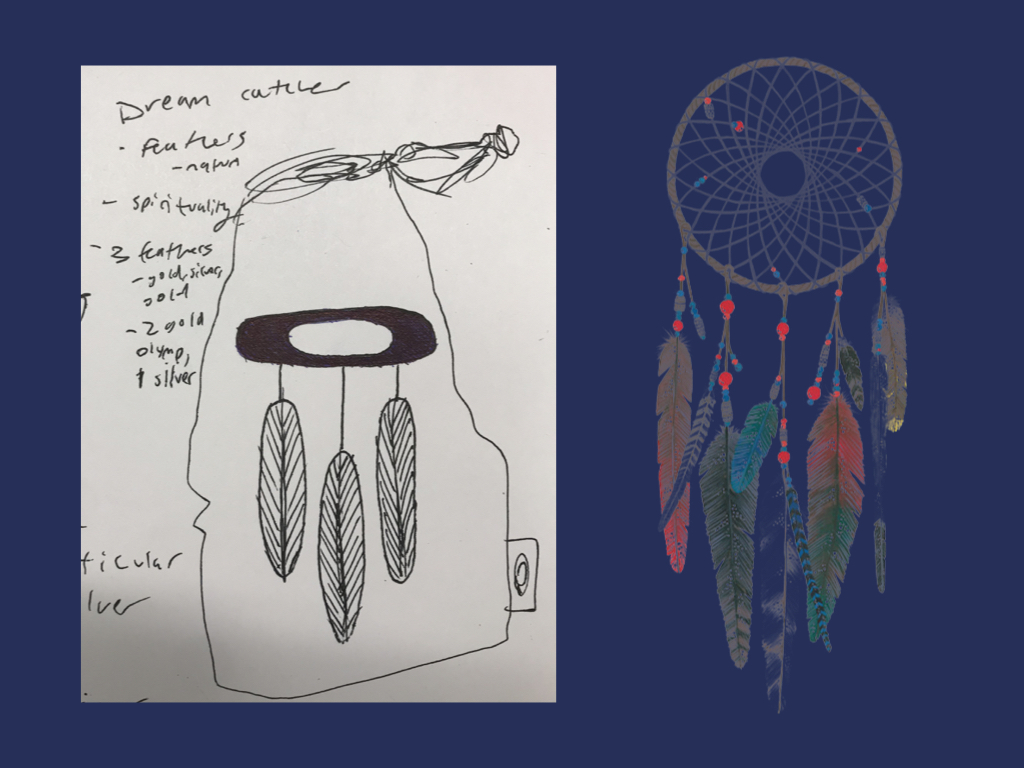 Dream catcher
· feathers
- natur
- spirituality
- 3 feathers
- gold, silver,
gold
- 2 gold
olymp,
1 silver
ticular
lver